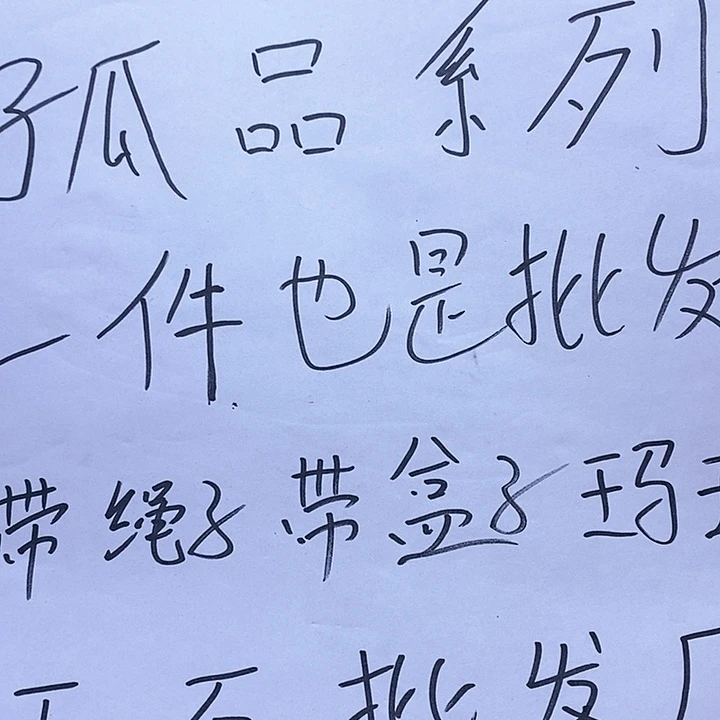 孤品系列
一件也是批发
带绳子带盒子玛
石批发厂